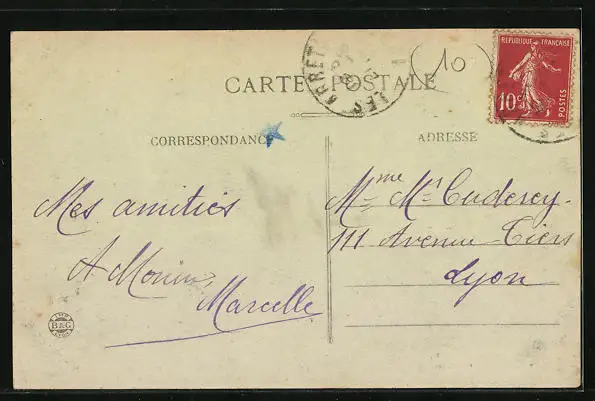 CARTE POSTALE
10
REPUBLIQUE FRANÇAISE
10c POSTES
CORRESPONDANCE
ADRESSE
Mes amitiés
A Monin
Marcelle
Mme
111 Avenue Tiers
Lyon
B&G